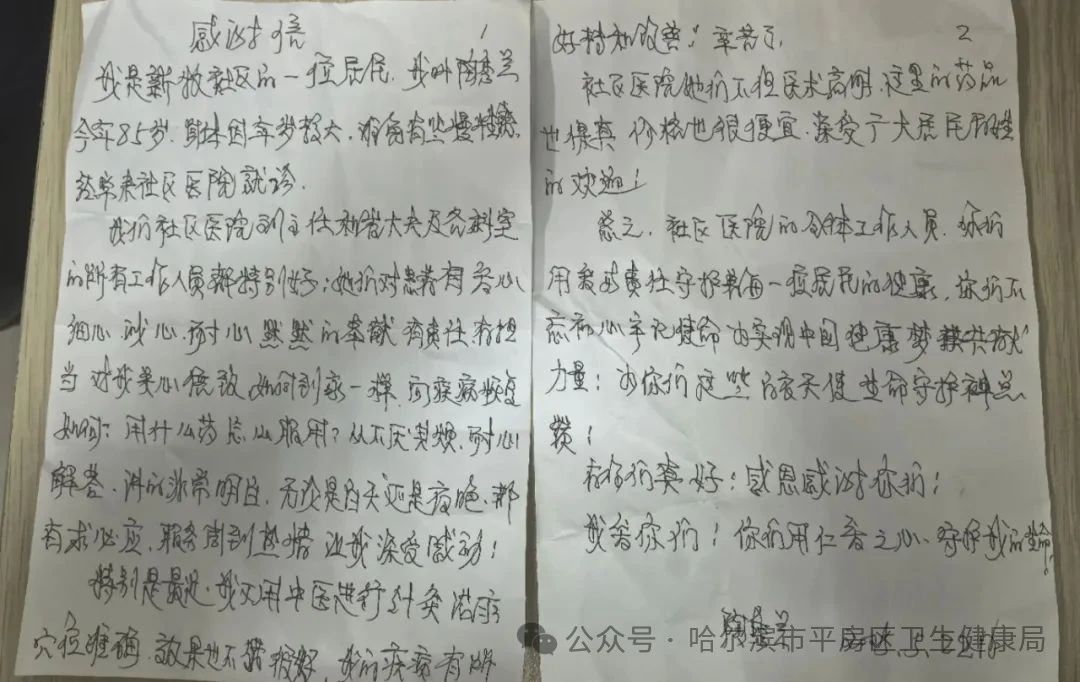 感谢信 1
我是新彊社区的一位居民,我叫陶玉兰
今年85岁,身体因年岁较大,准备有些慢性病,
经常来社区医院就诊。
我们社区医院刘主任和崔大夫及各科室
的所有工作人员都特别好;她们对患者有善心
细心、诚心、耐心 默默的奉献 有责任有担
当 对我关心倍至 如同到家一样,问疾病恢复
如何?用什么药怎么服用?从不厌其烦,耐心
解答,讲的非常明白,无论是白天还是夜晚,都
有求必应,服务周到热情 让我深受感动!
特别是最近,我又用中医进行针灸治疗
穴位准确,效果也不错很好,我的疾病有所
好转和改善!辛苦了, 2
社区医院她们不但医术高明,这里的药品
也很真 价格也很便宜,深受广大居民百姓
的欢迎!
总之,社区医院的全体工作人员,你们
用爱与责任守护着每一位居民的健康,你们不
忘初心牢记使命 为实现中国健康梦 共献
力量!为你们这些白衣天使生命守护神点
赞!
有你们真好!感恩感谢你们!
我爱你们!你们用仁爱之心,守护我的生命!
公众号·哈尔滨市平房区卫生健康局